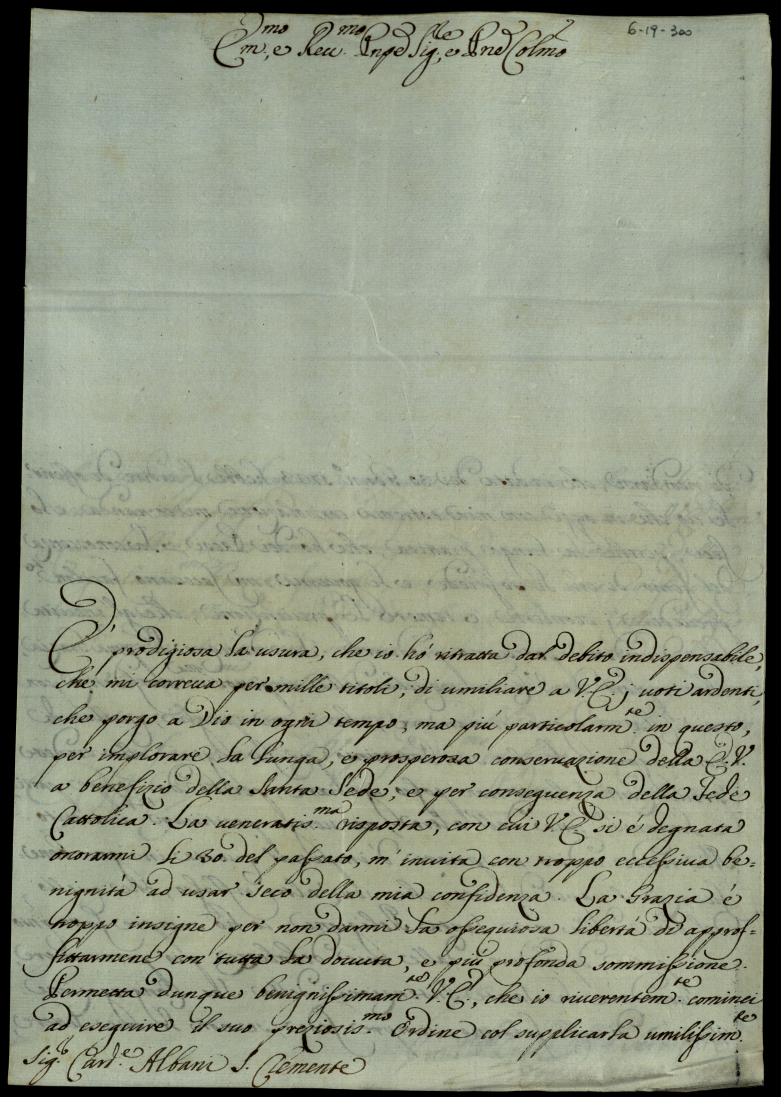 6-19-300
Em.mo, e Reu.mo Pnpe Sig.le, e Pne Colmo
É prodigiosa la usura, che io hó ritratta dal debito indispensabile,
che mi correua per mille titoli, di umiliare a V.E. i uoti ardenti,
che porgo a Dio in ogni tempo, ma piú particolarm.te in questo,
per implorare la lunga, e prosperosa conseruazione della E.V.
a benefizio della Santa Sede, e per conseguenza della Fede
Cattolica. La ueneratis.ma risposta, con cui V.E. si é degnata
onorarmi li 30. del passato, m'inuita con troppo eccessiua be-
nignitá ad usar seco della mia confidenza. La Grazia é
troppo insigne per non darmi la ossequiosa libertá di approf-
fittarmene con tutta la douuta, e piú profonda sommissione.
Permetta dunque benignissimam.te V.E., che io riuerentem.te cominci
ad eseguire il suo preziosis.mo Ordine col supplicarla umilissim.te
Sig.r Card.e Albani S. Clemente